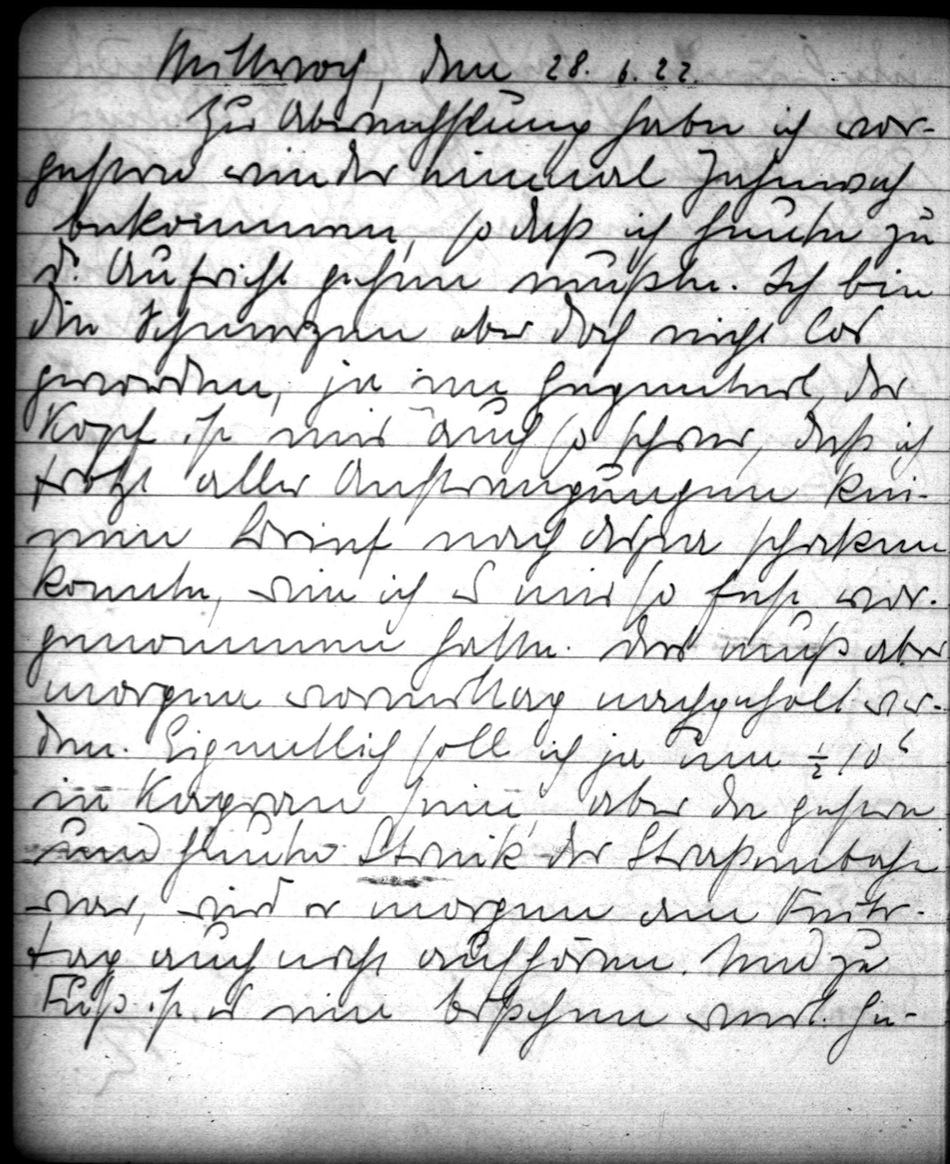 Mittwoch, den 28. 6. 22.
Zur Abwechslung habe ich vor-
gestern wieder einmal Zahnweh
bekommen, so daß ich heute zu
d. Aufricht gehen mußte. Ich bin
die Schmerzen aber doch nicht los
geworden, ja im Gegenteil, der
Kopf ist mir auch so schwer, daß ich
trotz aller Anstrengungen kei-
nen Brief nach schicken
konnte, wie ich es mir so fest vor-
genommen hatte. Das muß aber
morgen vormittag nachgeholt wer-
den. Eigentlich soll ich ja um ½ 10 h
in Kagran sein, aber da gestern
und heute Streik der Straßenbahn
war, wird er morgen am Feier-
tag auch nicht aufhören. Und zu
Fuß ist es ein bißchen weit. Ge-